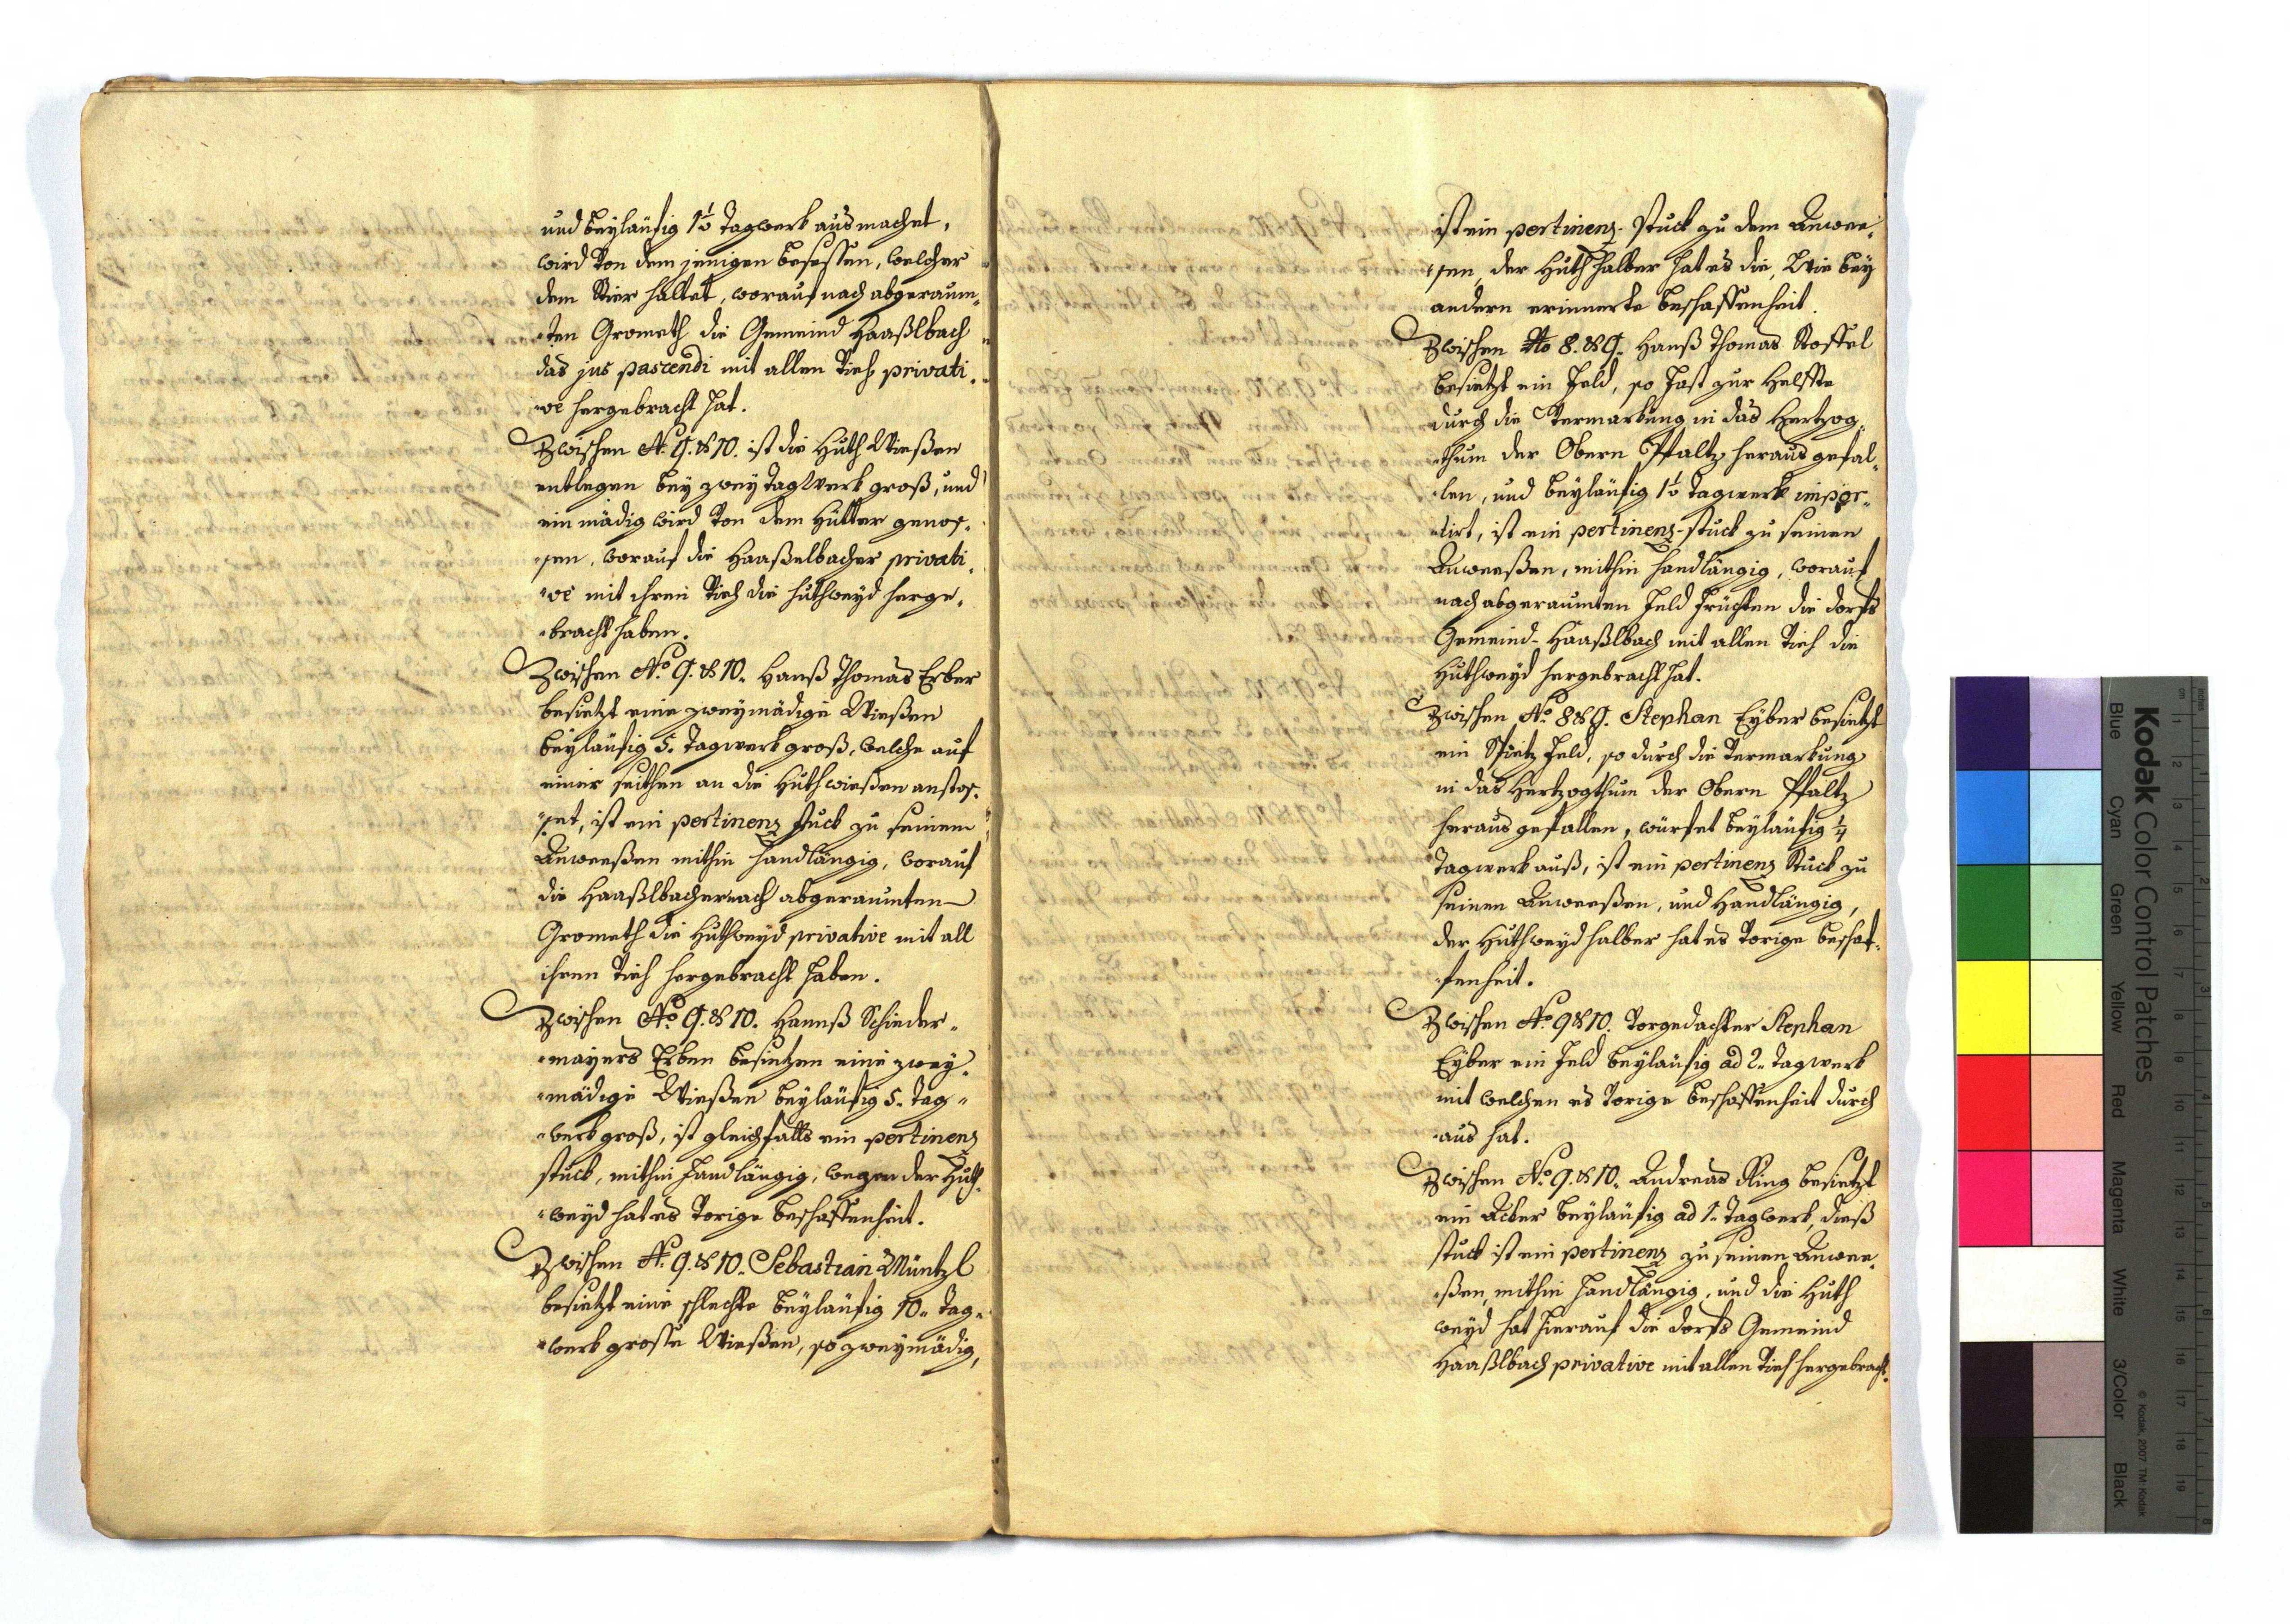 und beyläufig 1½ Tagwerk ausmachet,
wird von dem jenigen besessen, welcher
dem Stier haltet, worauf nach abgeraum-
ten Grometh die Gemeind Haaßlbach
das jus pascendi mit allen Vieh privati-
ve hergebracht hat.
Zwischen No. 9. & 10. ist die Huth Wießen
entlegen bey zwey Tagwerk groß, und
ein mädig wird von dem Hütter genos-
sen, worauf die Haaßelbacher privati-
ve mit ihren Vieh die huthweyd herge-
bracht haben.
Zwischen No. 9. & 10. Hanß Thomas Erber
besietzt eine zweymädige Wießen
beyläufig 5. Tagwerk groß, welche auf
einer seithen an die Huthwießen anstos-
set, ist ein pertinenz stuck zu seinem
Anweeßen mithin handlängig, worauf
die Haaßlbacher nach abgeraumten
Grometh die Huthweyd privative mit all
ihren Vieh hergebracht haben.
Zwischen No. 9. & 10. Hannß Schieder-
mayers Erben besietzen eine zwey-
mädige Wießen beyläufig 5. Tag-
werk groß, ist gleichfalls ein pertinenz
stuck, mithin handlängig, wegen der Huth-
weyd hat es vorige beschaffenheit.
Zwischen No. 9. & 10. Sebastian Müntzl
besietzt eine schlechte beyläufig 10. Tag-
werk grosse Wießen, so zweymädig,
ist ein pertinenz- stuck zu dem Anwee-
sen, der Huth halber hat es die, Wie bey
andern erinnerte beschaffenheit.
Zwischen No 8. & 9. Hanß Thomas Stossel
besietzt ein Feld, so fast zur Helffte
durch die Vermarkung in das Hertzog-
thum der Obern Pfaltz heraus gefal-
len, und beyläufig 1½ Tagwerk impor-
tirt, ist ein pertinenz-stuck zu seinen
Anweeßen, mithin handlängig, worauf
nach abgeraumten Feld früchten die dorfs
Gemeind Haaßlbach mit allen Vieh die
Huthweyd hergebracht hat.
Zwischen No. 8 & 9. Stephan Eyber besietzt
ein Spietz Feld, so durch die Vermarkung
in das Hertzogthum der Obern Pfaltz
heraus gefallen, würfet beyläufig ¼
Tagwerk auß, ist ein pertinenz Stuck zu
seinen Anweeßen, und Handlängig,
der Huthweyd halber hat es vorige beschaf-
fenheit.
Zwischen No. 9 & 10. Vorgedachter Stephan
Eyber ein Feld beyläufig ad 2. Tagwerk
mit welchen es vorige beschaffenheit durch
aus hat.
Zwischen No. 9. & 10. Andreas Ring besietzt
ein Acker beyläufig ad 1. Tagwerk, dieß
stuck ist ein pertinenz zu seinen Anwee-
ßen, mithin handlängig, und die Huth
weyd hat hierauf die dorfs Gemeind
Haaßlbach privative mit allen Vieh hergebracht.
Kodak Color Control Patches
Blue Cyan Green Yellow Red Magenta White 3/Color Black
© Kodak, 2007 TM: Kodak